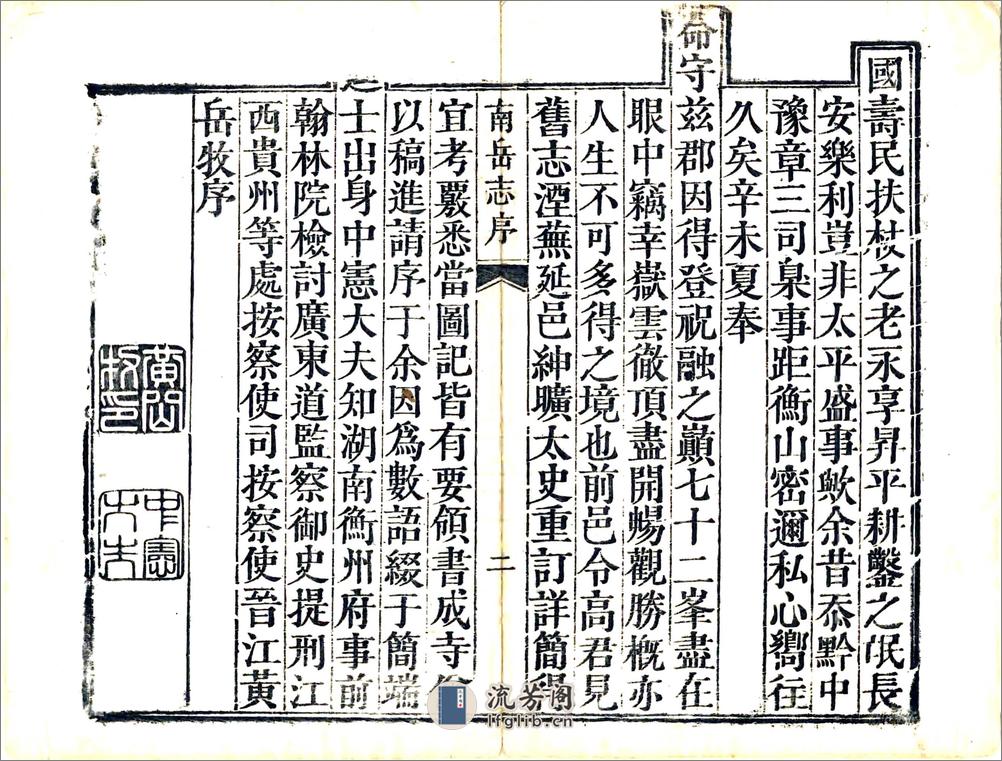 國壽民扶杖之老永享昇平耕鑿之氓長
安樂利豈非太平盛事歟余昔忝黔中
豫章三司臬事距衡山密邇私心嚮往
久矣辛未夏奉
命守兹郡因得登祝融之巔七十二峯盡在
眼中竊幸嶽雲徹頂盡開暢觀勝概亦
人生不可多得之境也前邑令高君見
舊志湮蕪延邑紳曠太史重訂詳簡得
南岳志序
二
宜考覈悉當圖記皆有要領書成寺僧
以稿進請序于余因爲數語綴于簡端
士出身中憲大夫知湖南衡州府事前
翰林院檢討廣東道監察御史提刑江
西貴州等處按察使司按察使晉江黃
岳牧序
黃岳
牧印
中憲
大夫
流芳阁
lfglib.cn